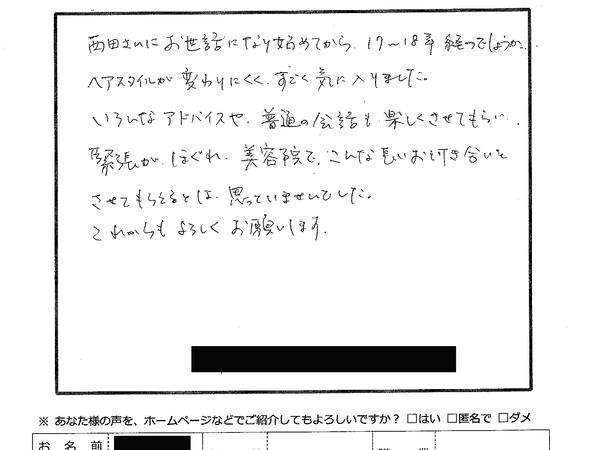 西田さんにお世話になり始めてから、17〜18年経つでしょうか。
ヘアスタイルが変わりにくく、すごく気に入りました。
いろんなアドバイスや、普通の会話も楽しくさせてもらい、
緊張がほぐれ、美容院で、こんな長いお付き合いを
させてもらえるとは、思っていませんでした。
これからもよろしくお願いします。
※ あなた様の声を、ホームページなどでご紹介してもよろしいですか？ □はい □匿名で □ダメ
お 名 前